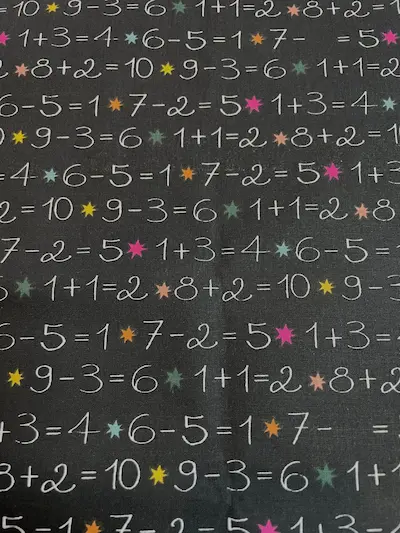 10 9-3=6 1+1=2 8+2=10
1+3=4 6-5=1 7- =5
8+2=10 9-3=6 1+1=2
6-5=1 7-2=5 1+3=4
9-3=6 1+1=2 8+2=1
=4 6-5=1 7-2=5 1+3
2=10 9-3=6 1+1=2 8
7-2=5 1+3=4 6-5=
1+1=2 8+2=10 9-3
6-5=1 7-2=5 1+3=
9-3=6 1+1=2 8+2
+3=4 6-5=1 7- =
8+2=10 9-3=6 1+
5=1 7-2=5 1+3=